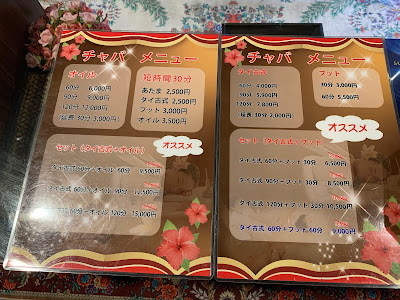 チャバ　メニュー
オイル
60分　6,000円
90分　9,000円
120分　12,000円
延長 30分 3,000円
短時間30分
あたま 2,500円
タイ古式 2,500円
フット 3,000円
オイル 3,500円
オススメ
セット（タイ古式＋オイル）
タイ古式 60分＋オイル 60分　9,500円
タイ古式 60分＋オイル 90分　12,500円
60分＋オイル 120分　15,000円
チャバ　メニュー
タイ古式
60分　4,000円
90分　5,900円
120分　7,800円
延長（30分 2,000円）
フット
30分 3,000円
60分 5,500円
オススメ
セット（タイ古式＋フット）
タイ古式 60分＋フット 30分　6,500円
タイ古式 90分＋フット 30分　8,500円
タイ古式 120分＋フット 30分 10,500円
タイ古式 60分＋フット 60分　9,000円